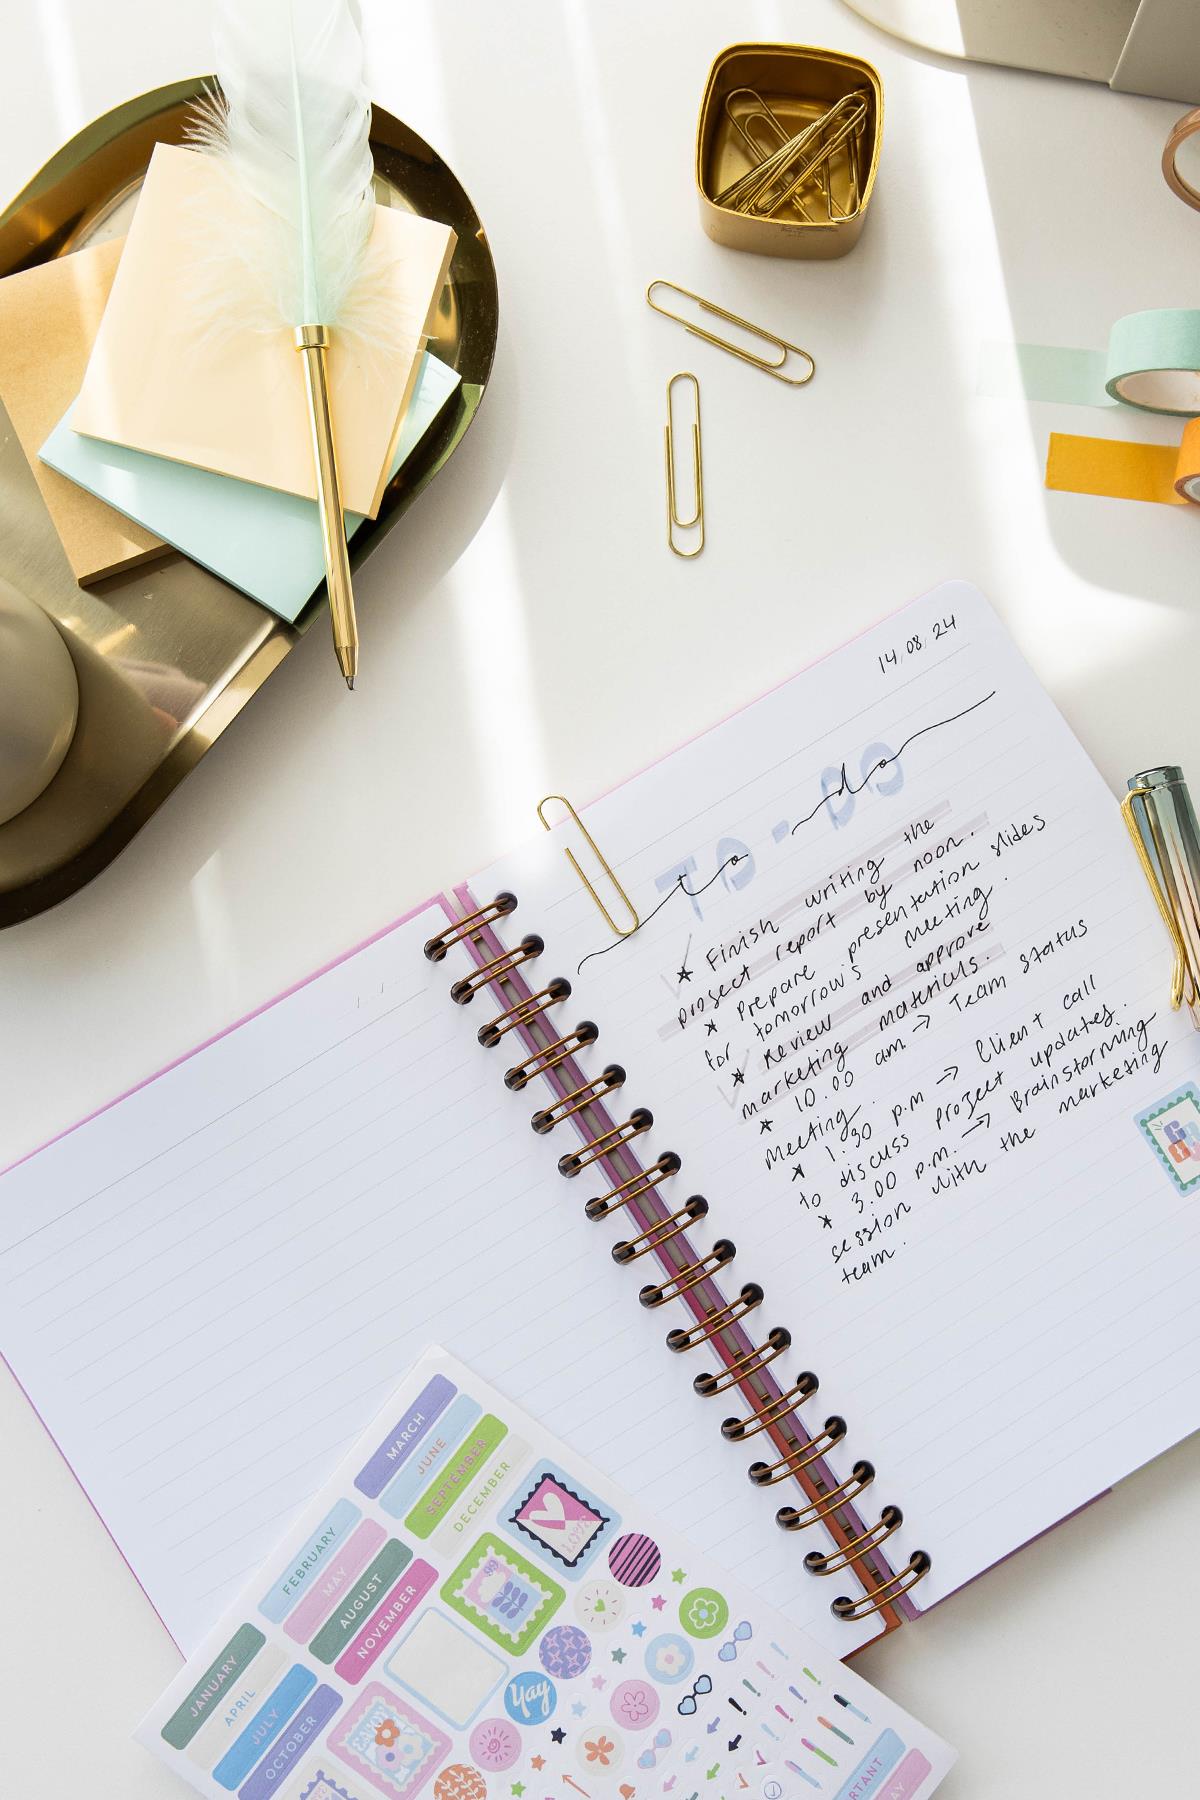 14.08.24
to-do
TO-DO
* Finish writing the
project report by noon.
* Prepare presentation slides
for tomorrow's meeting.
* Review and approve
marketing materials.
* 10.00 am → Team status
meeting.
* 1.30 p.m → Client call
to discuss project updates.
* 3.00 p.m. → Brainstorming
session with the marketing
team.
MARCH
JUNE
SEPTEMBER
DECEMBER
FEBRUARY
MAY
AUGUST
NOVEMBER
JANUARY
APRIL
JULY
OCTOBER
LOVE
Yay
ENJOY